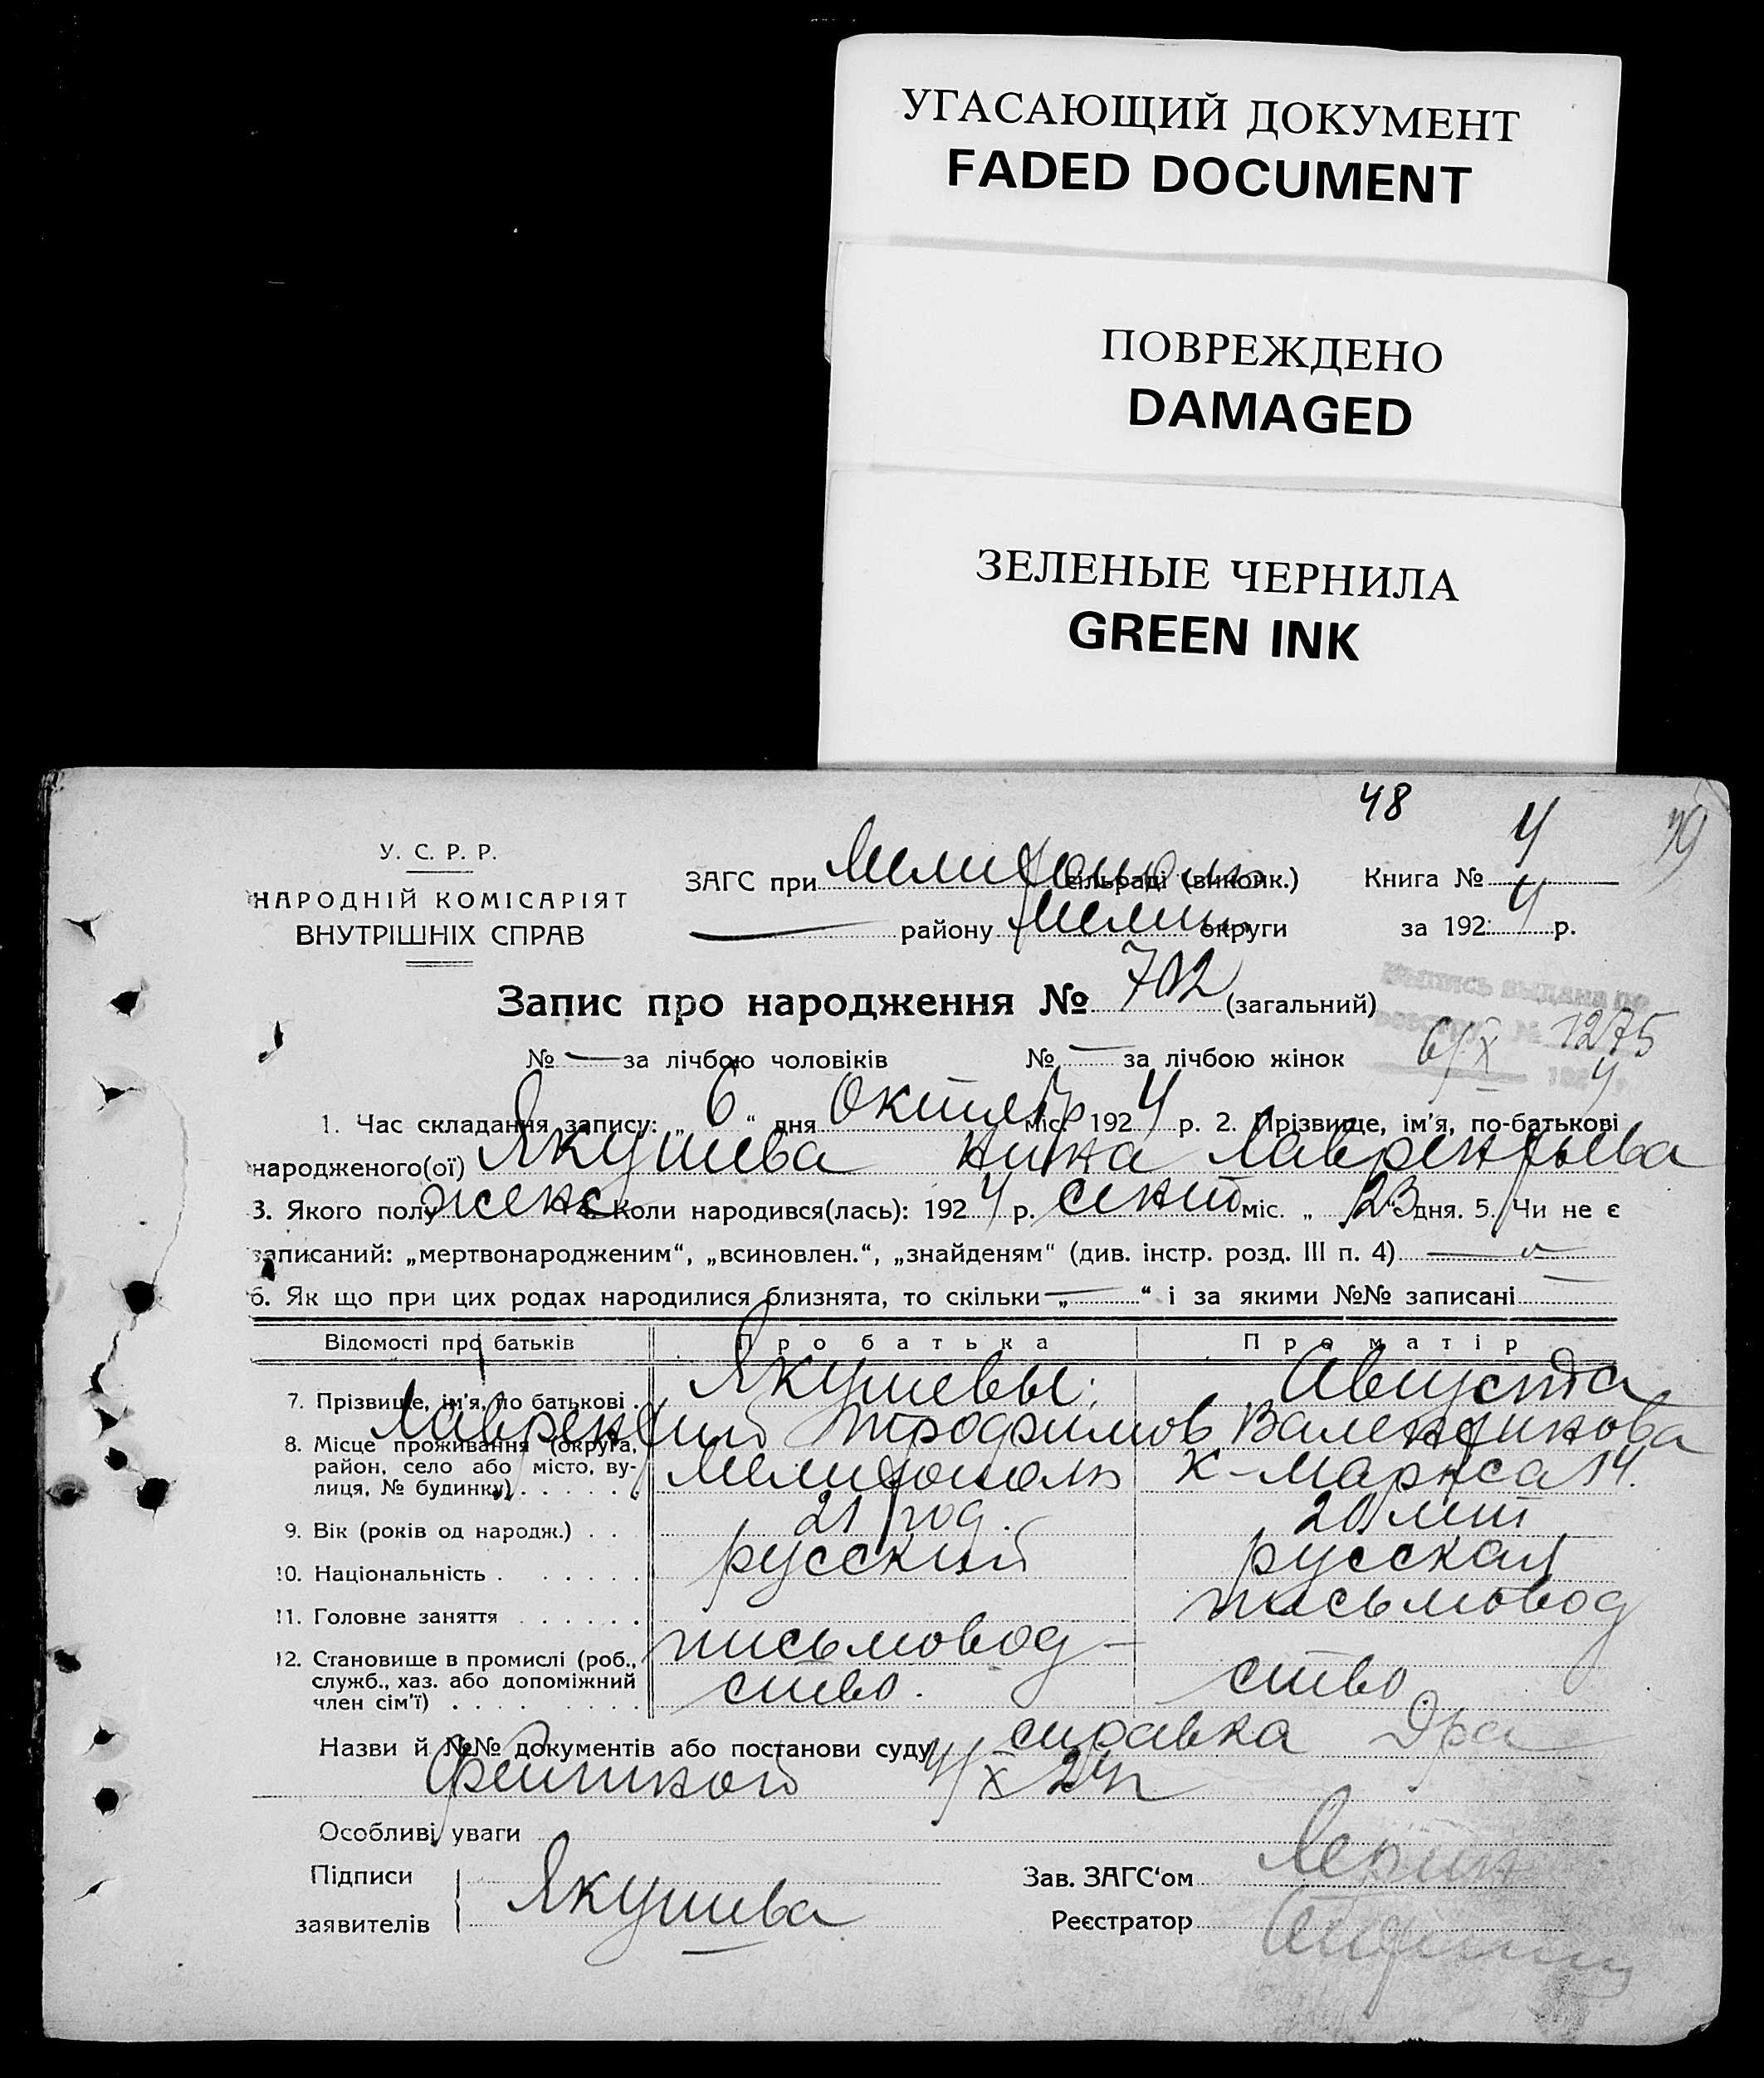 УГАСАЮЩИЙ ДОКУМЕНТ
FADED DOCUMENT
ПОВРЕЖДЕНО
DAMAGED
ЗЕЛЕНЫЕ ЧЕРНИЛА
GREEN INK
48
79
У. С. Р. Р.
НАРОДНІЙ КОМІСАРІЯТ
ВНУТРІШНІХ СПРАВ
ЗАГС при Мелитополь сільраді (виконк.) Книга № 4
— району Мелит округи за 1924 р.
Запис про народження № 702 (загальний)
ВЫПИСЬ ВЫДАНА ПО
№ 1275
6/X 1924
№ — за лічбою чоловіків № — за лічбою жінок
1. Час складання запису: „ 6 “ дня Октября міс. 1924 р. 2. Прізвище, ім'я, по-батькові
народженого(ої) Якушева Нина Лаврентьева
3. Якого полу женс Коли народився(лась): 1924 р. сент міс. „ 23 дня. 5. Чи не є
записаний: „мертвонародженим“, „всиновлен.“, „знайденям“ (див. інстр. розд. III п. 4) —
6. Як що при цих родах народилися близнята, то скільки „ — “ і за якими №№ записані —
Відомості про батьків Про батька Про матір
7. Прізвище, ім'я, по батькові . Якушевы: Августа
Лаврентий Трофимов Валентинова
8. Місце проживання (округа, район, село або місто, ву-
лиця, № будинку) . . . . . . Мелитополь К-Маркса 14.
9. Вік (років од народж.) . . 21 год. 20 лет
10. Національність . . . . . . русский русская
11. Головне заняття . . . . . . письмовод
12. Становище в промислі (роб., письмовод-
служб., хаз. або допоміжний ство. ство
член сім'ї) . . . . . .
Назви й №№ документів або постанови суду справка Дра
4/X 24 г
Особливі уваги
Підписи
заявителів Якушева
Зав. ЗАГС‘ом
Реєстратор